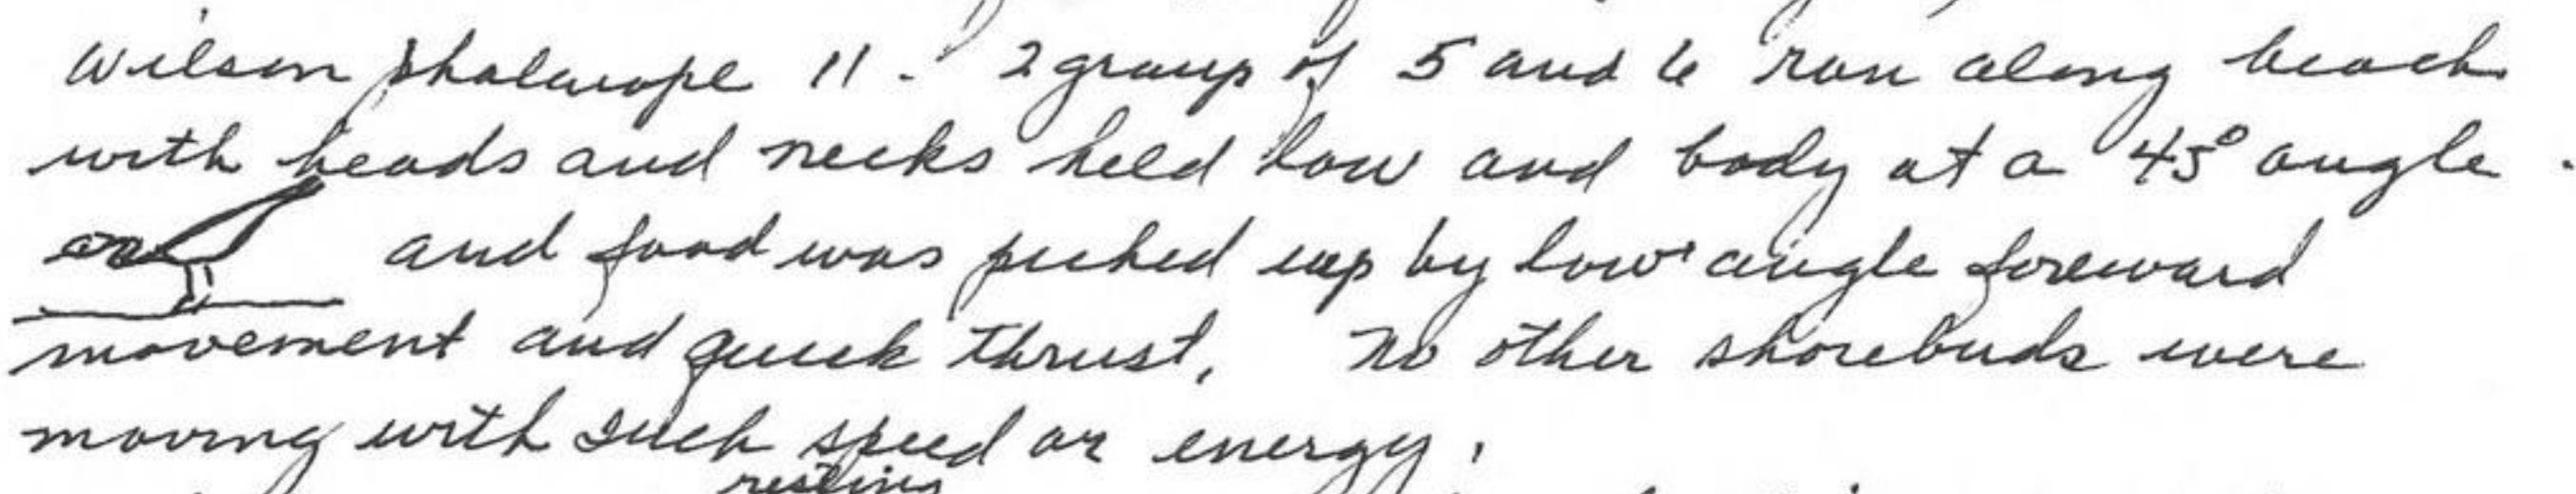 Wilson phalarope 11. 2 group of 5 and 6 run along beach
with heads and necks held low and body at a 45° angle.
and food was picked up by low angle foreward
movement and quick thrust. No other shorebirds were
moving with such speed or energy.
resting